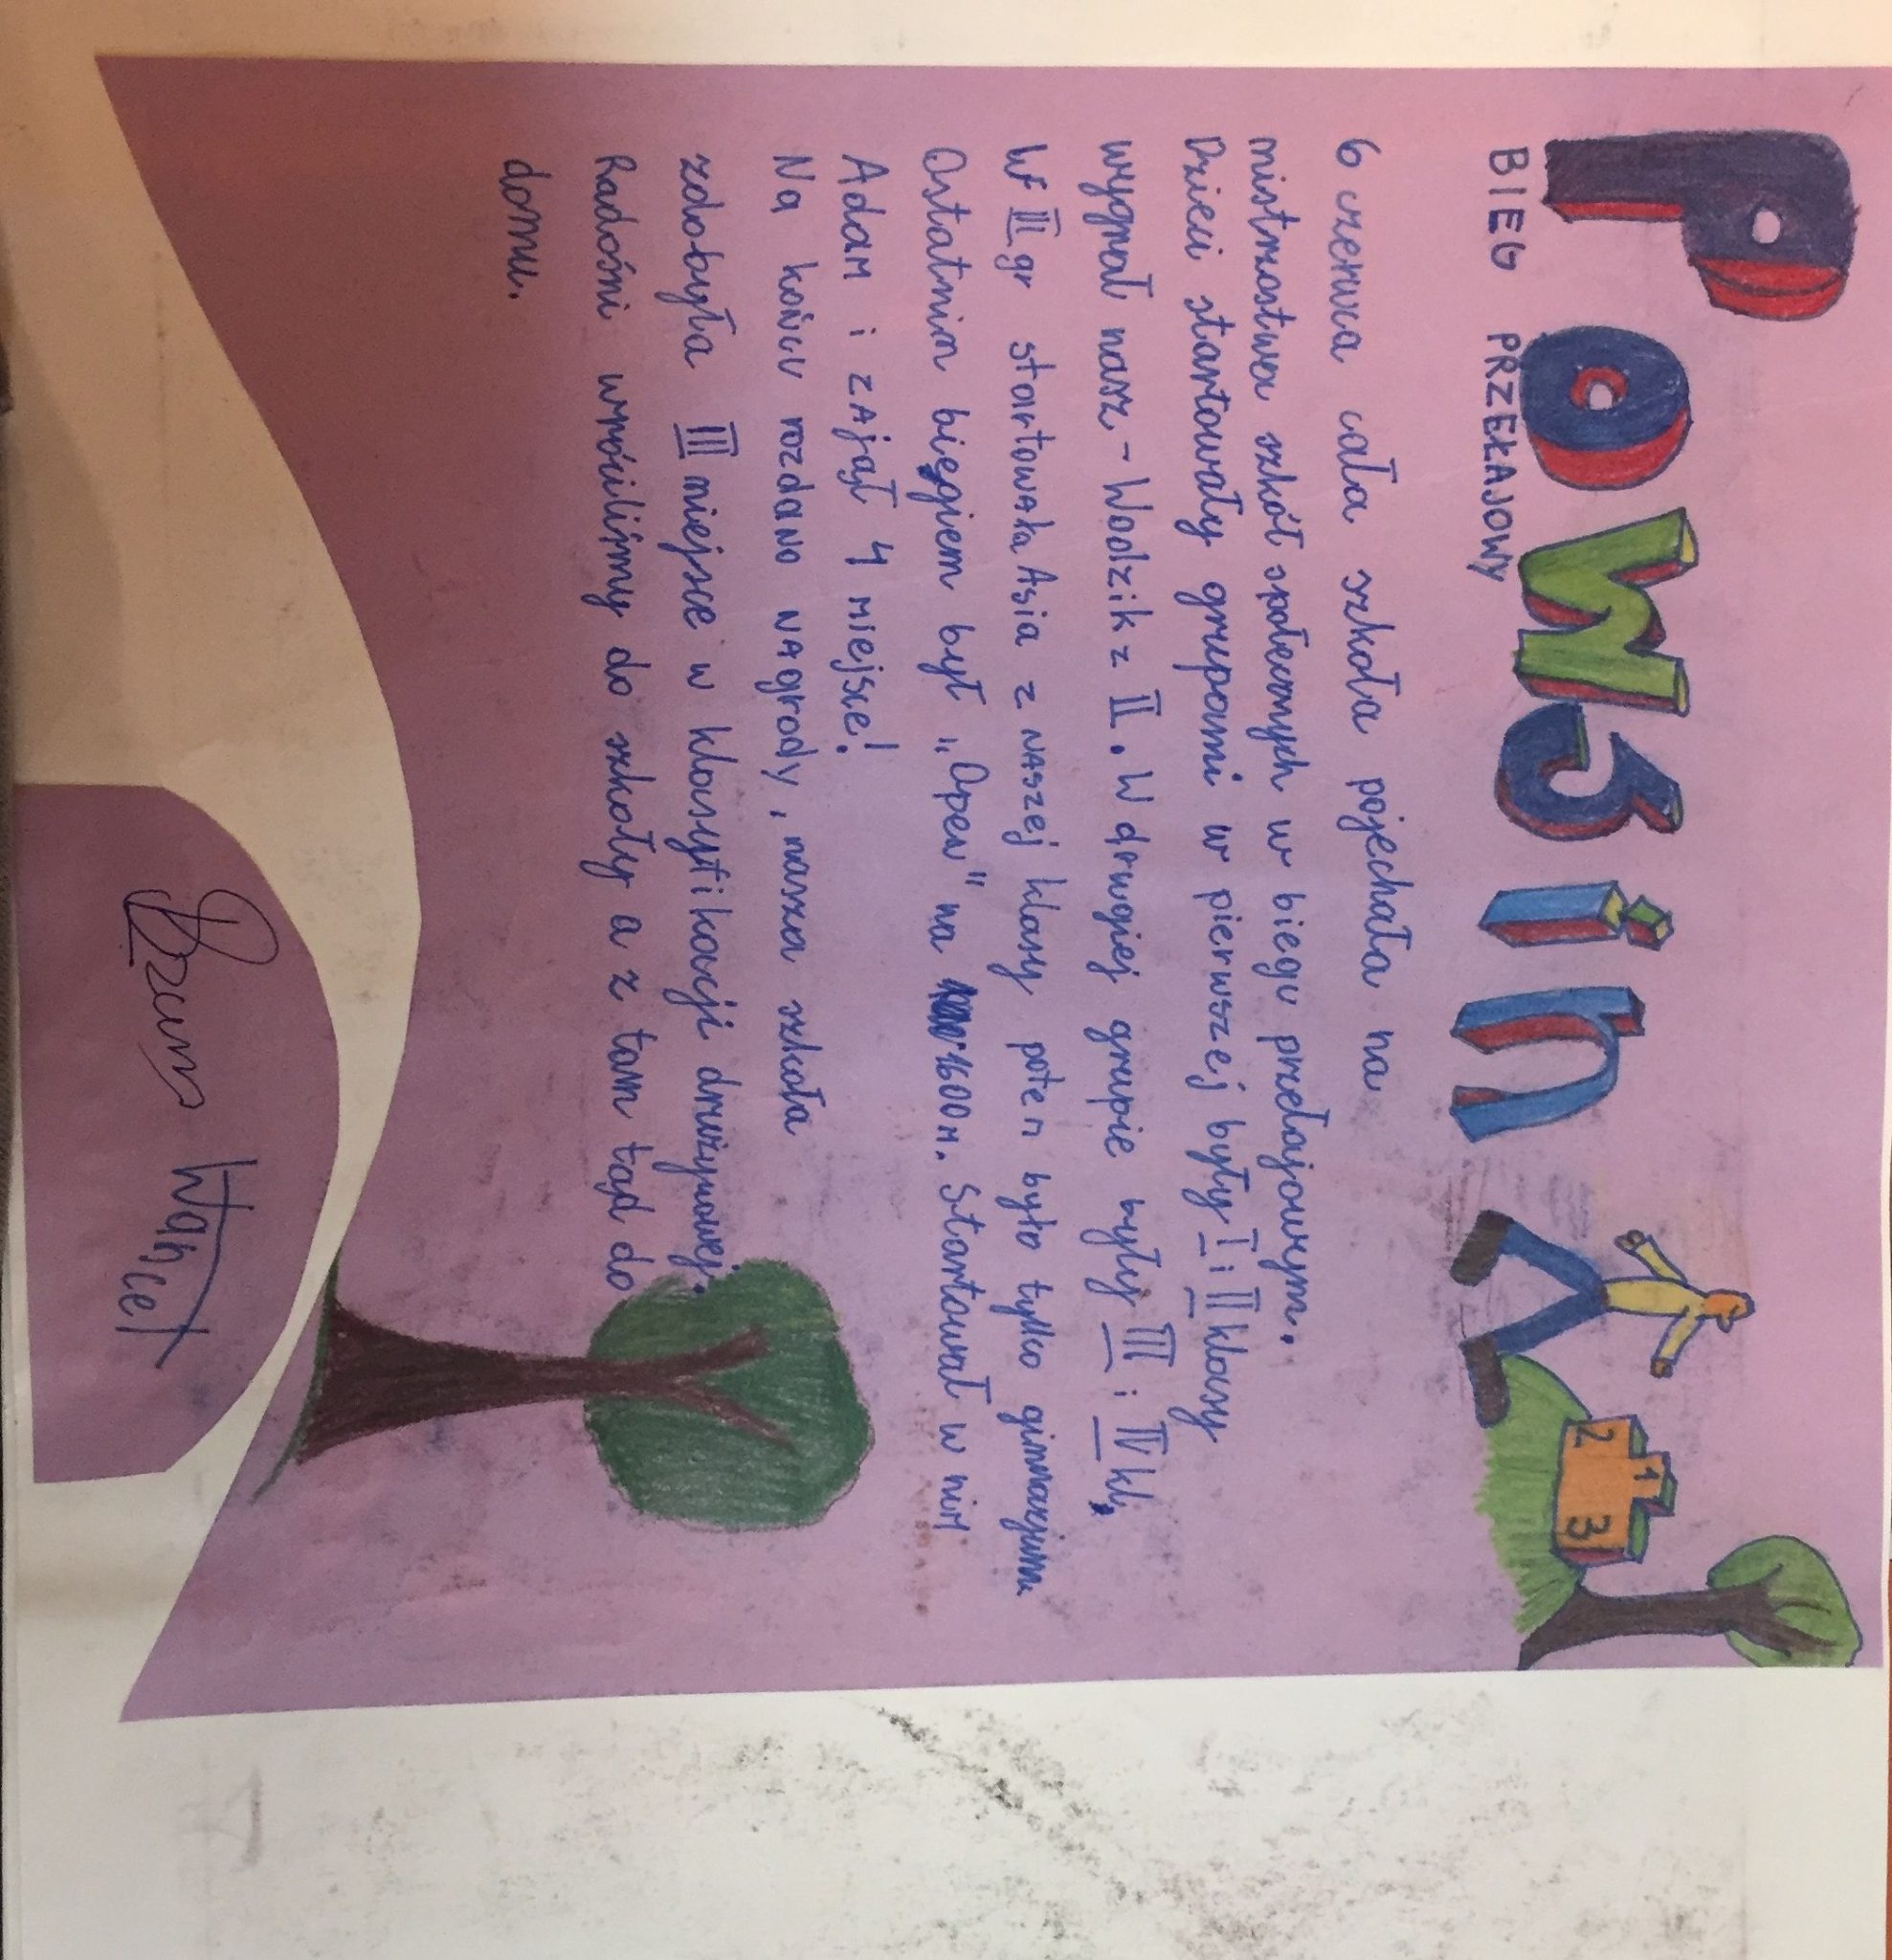 Powsin
BIEG PRZEŁAJOWY
6 czerwca cała szkoła pojechała na
mistrzostwa szkół społecznych w biegu przełajowym.
Dzieci startowały grupami w pierwszej były I i II klasy
wygrał nasz - Wodzik z II. W drugiej grupie były III i IV kl,
W II gr startowała Asia z naszej klasy potem było tylko gimnazjum
Ostatnim biegiem był „Open" na 1600 m. Startował w nim
Adam i zajął 4 miejsce!
Na końcu rozdano nagrody, nasza szkoła
zdobyła III miejsce w klasyfikacji drużynowej.
Radośni wróciliśmy do szkoły a z tam tąd do
domu.
2 1 3